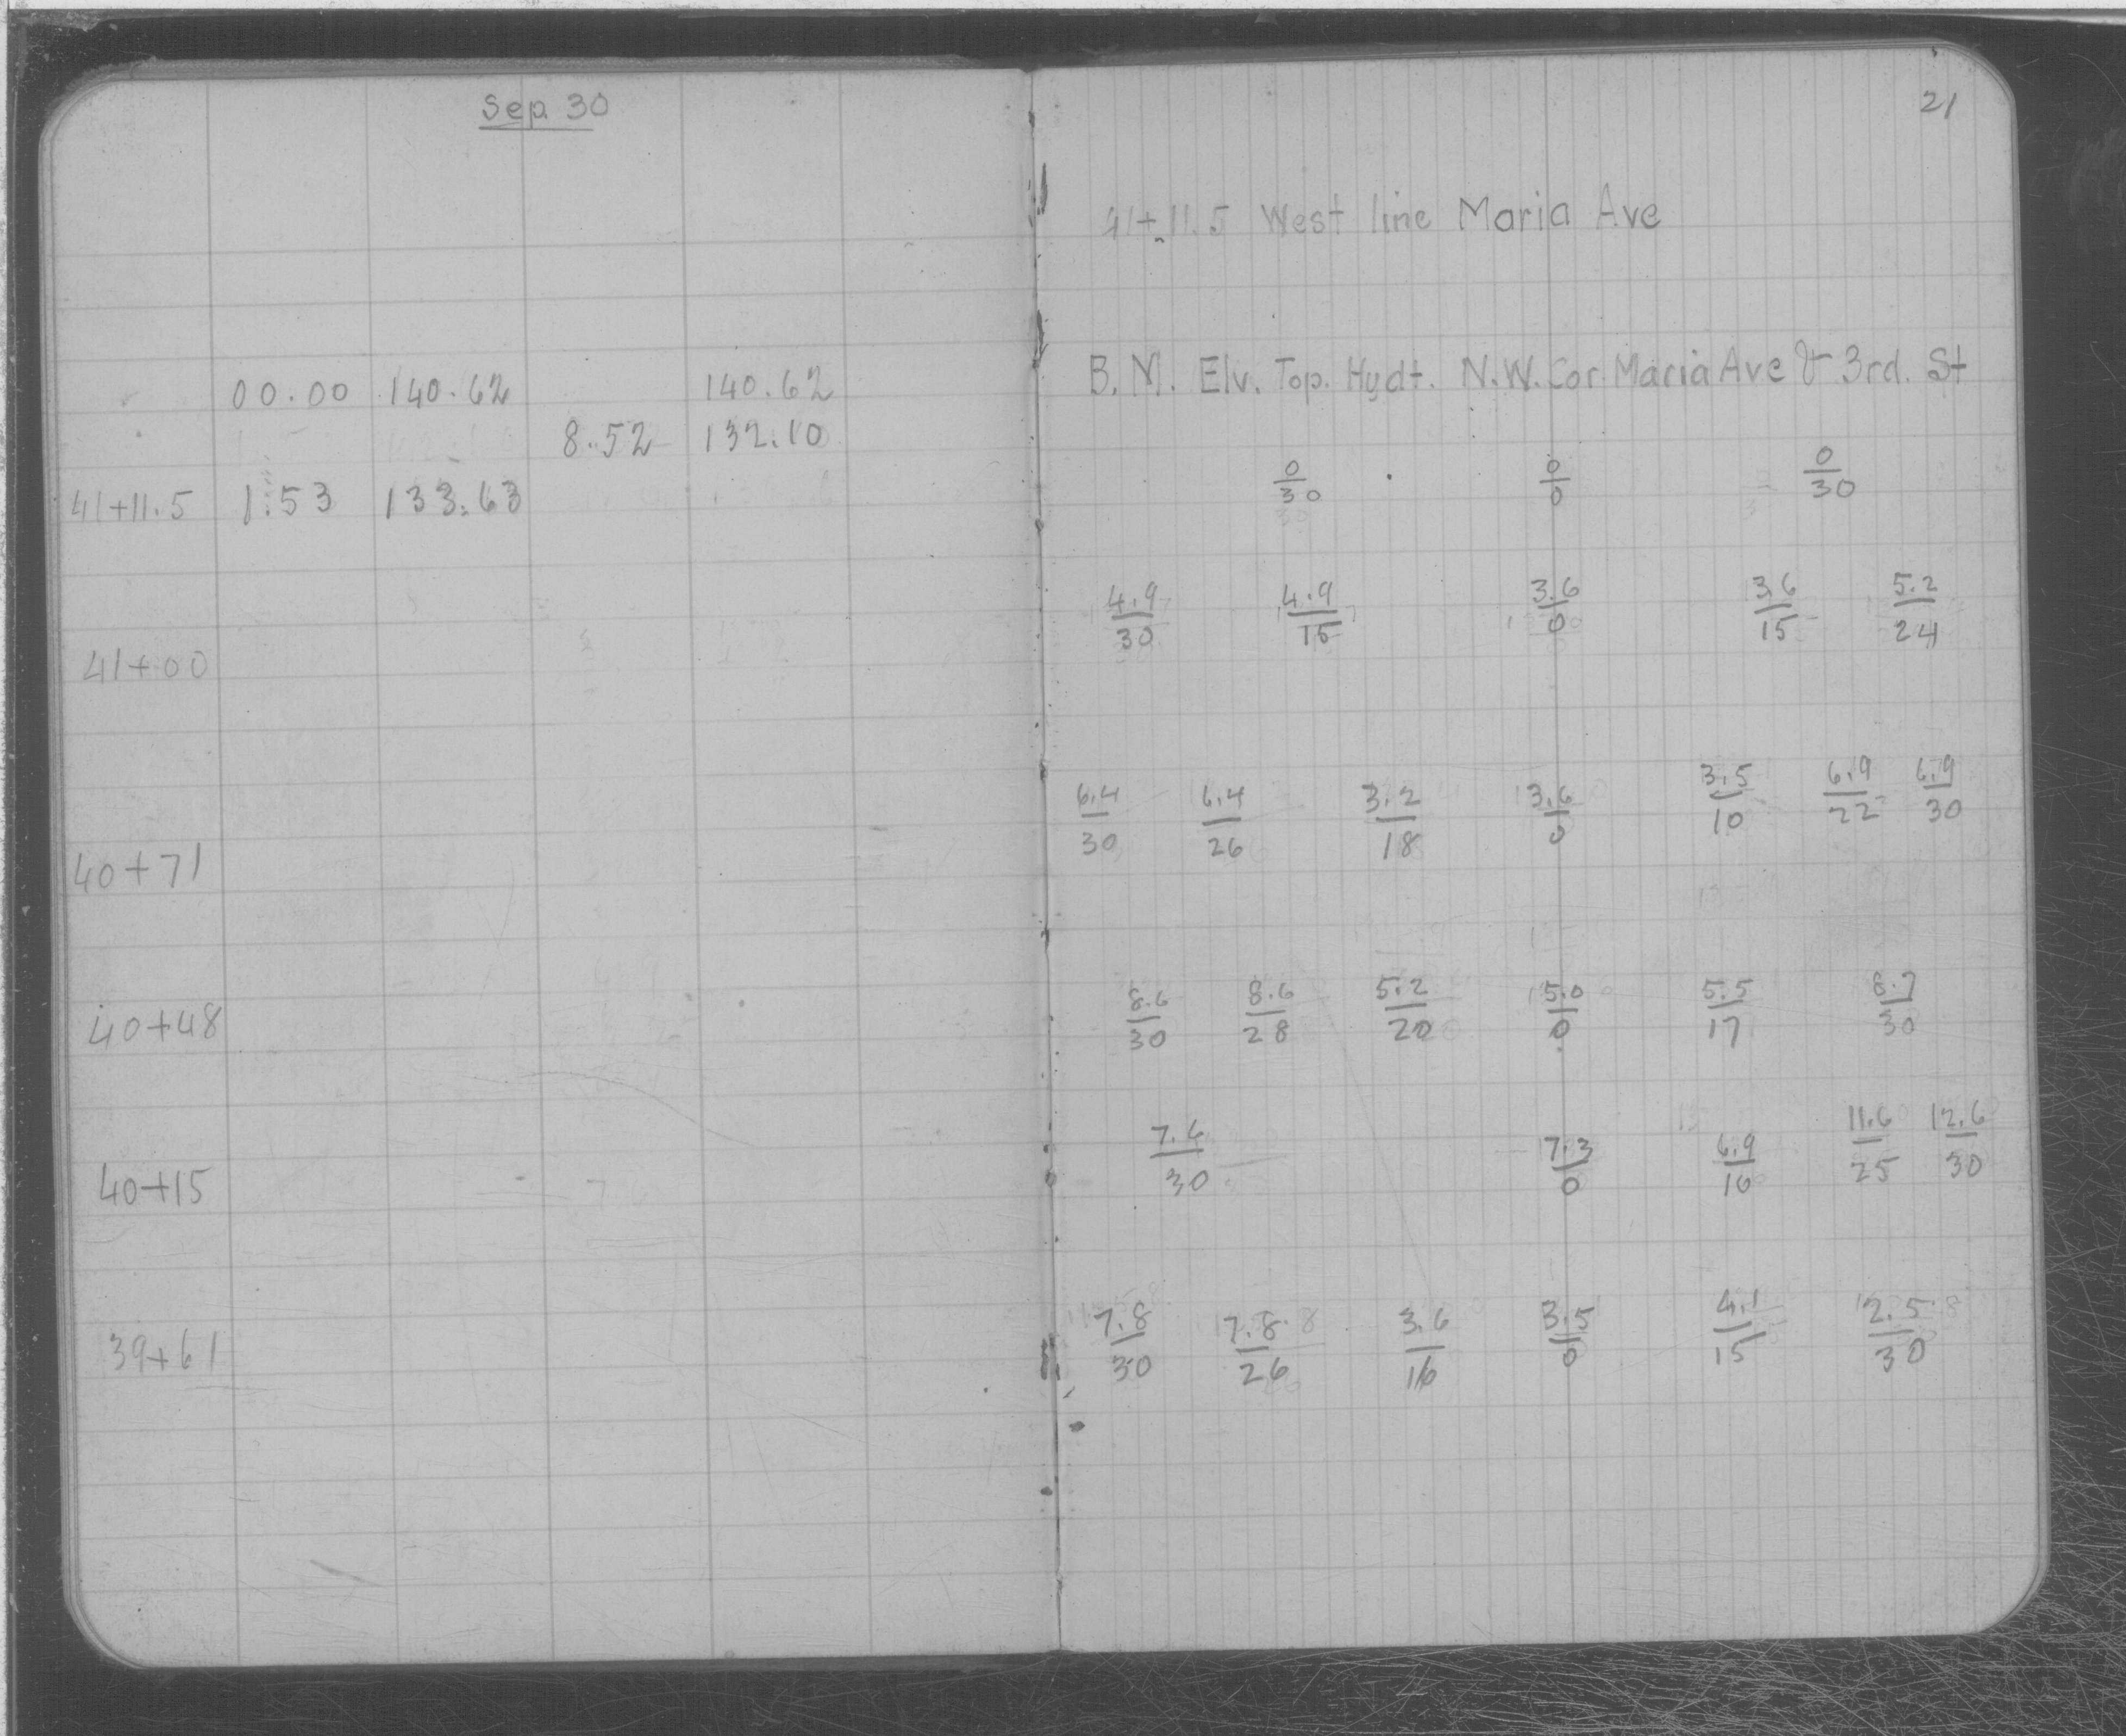 Sep. 30
00.00 140.62 140.62
8.52 132.10
41+11.5 1.53 133.63
41+00
40+71
40+48
40+15
39+61
21
41+11.5 West line Maria Ave
B.M. Elv. Top. Hydt. N.W. Cor. Maria Ave & 3rd. St
0/30 0/0 0/30
4.9/30 4.9/15 3.6/0 3.6/15 5.2/24
6.4/30 6.4/26 3.2/18 3.6/0 3.5/10 6.9/22 6.9/30
8.6/30 8.6/28 5.2/20 5.0/0 5.5/17 8.7/30
7.6/30 7.3/0 6.9/10 11.6/25 12.6/30
7.8/30 7.8/26 3.6/16 3.5/0 4.1/15 2.5/30